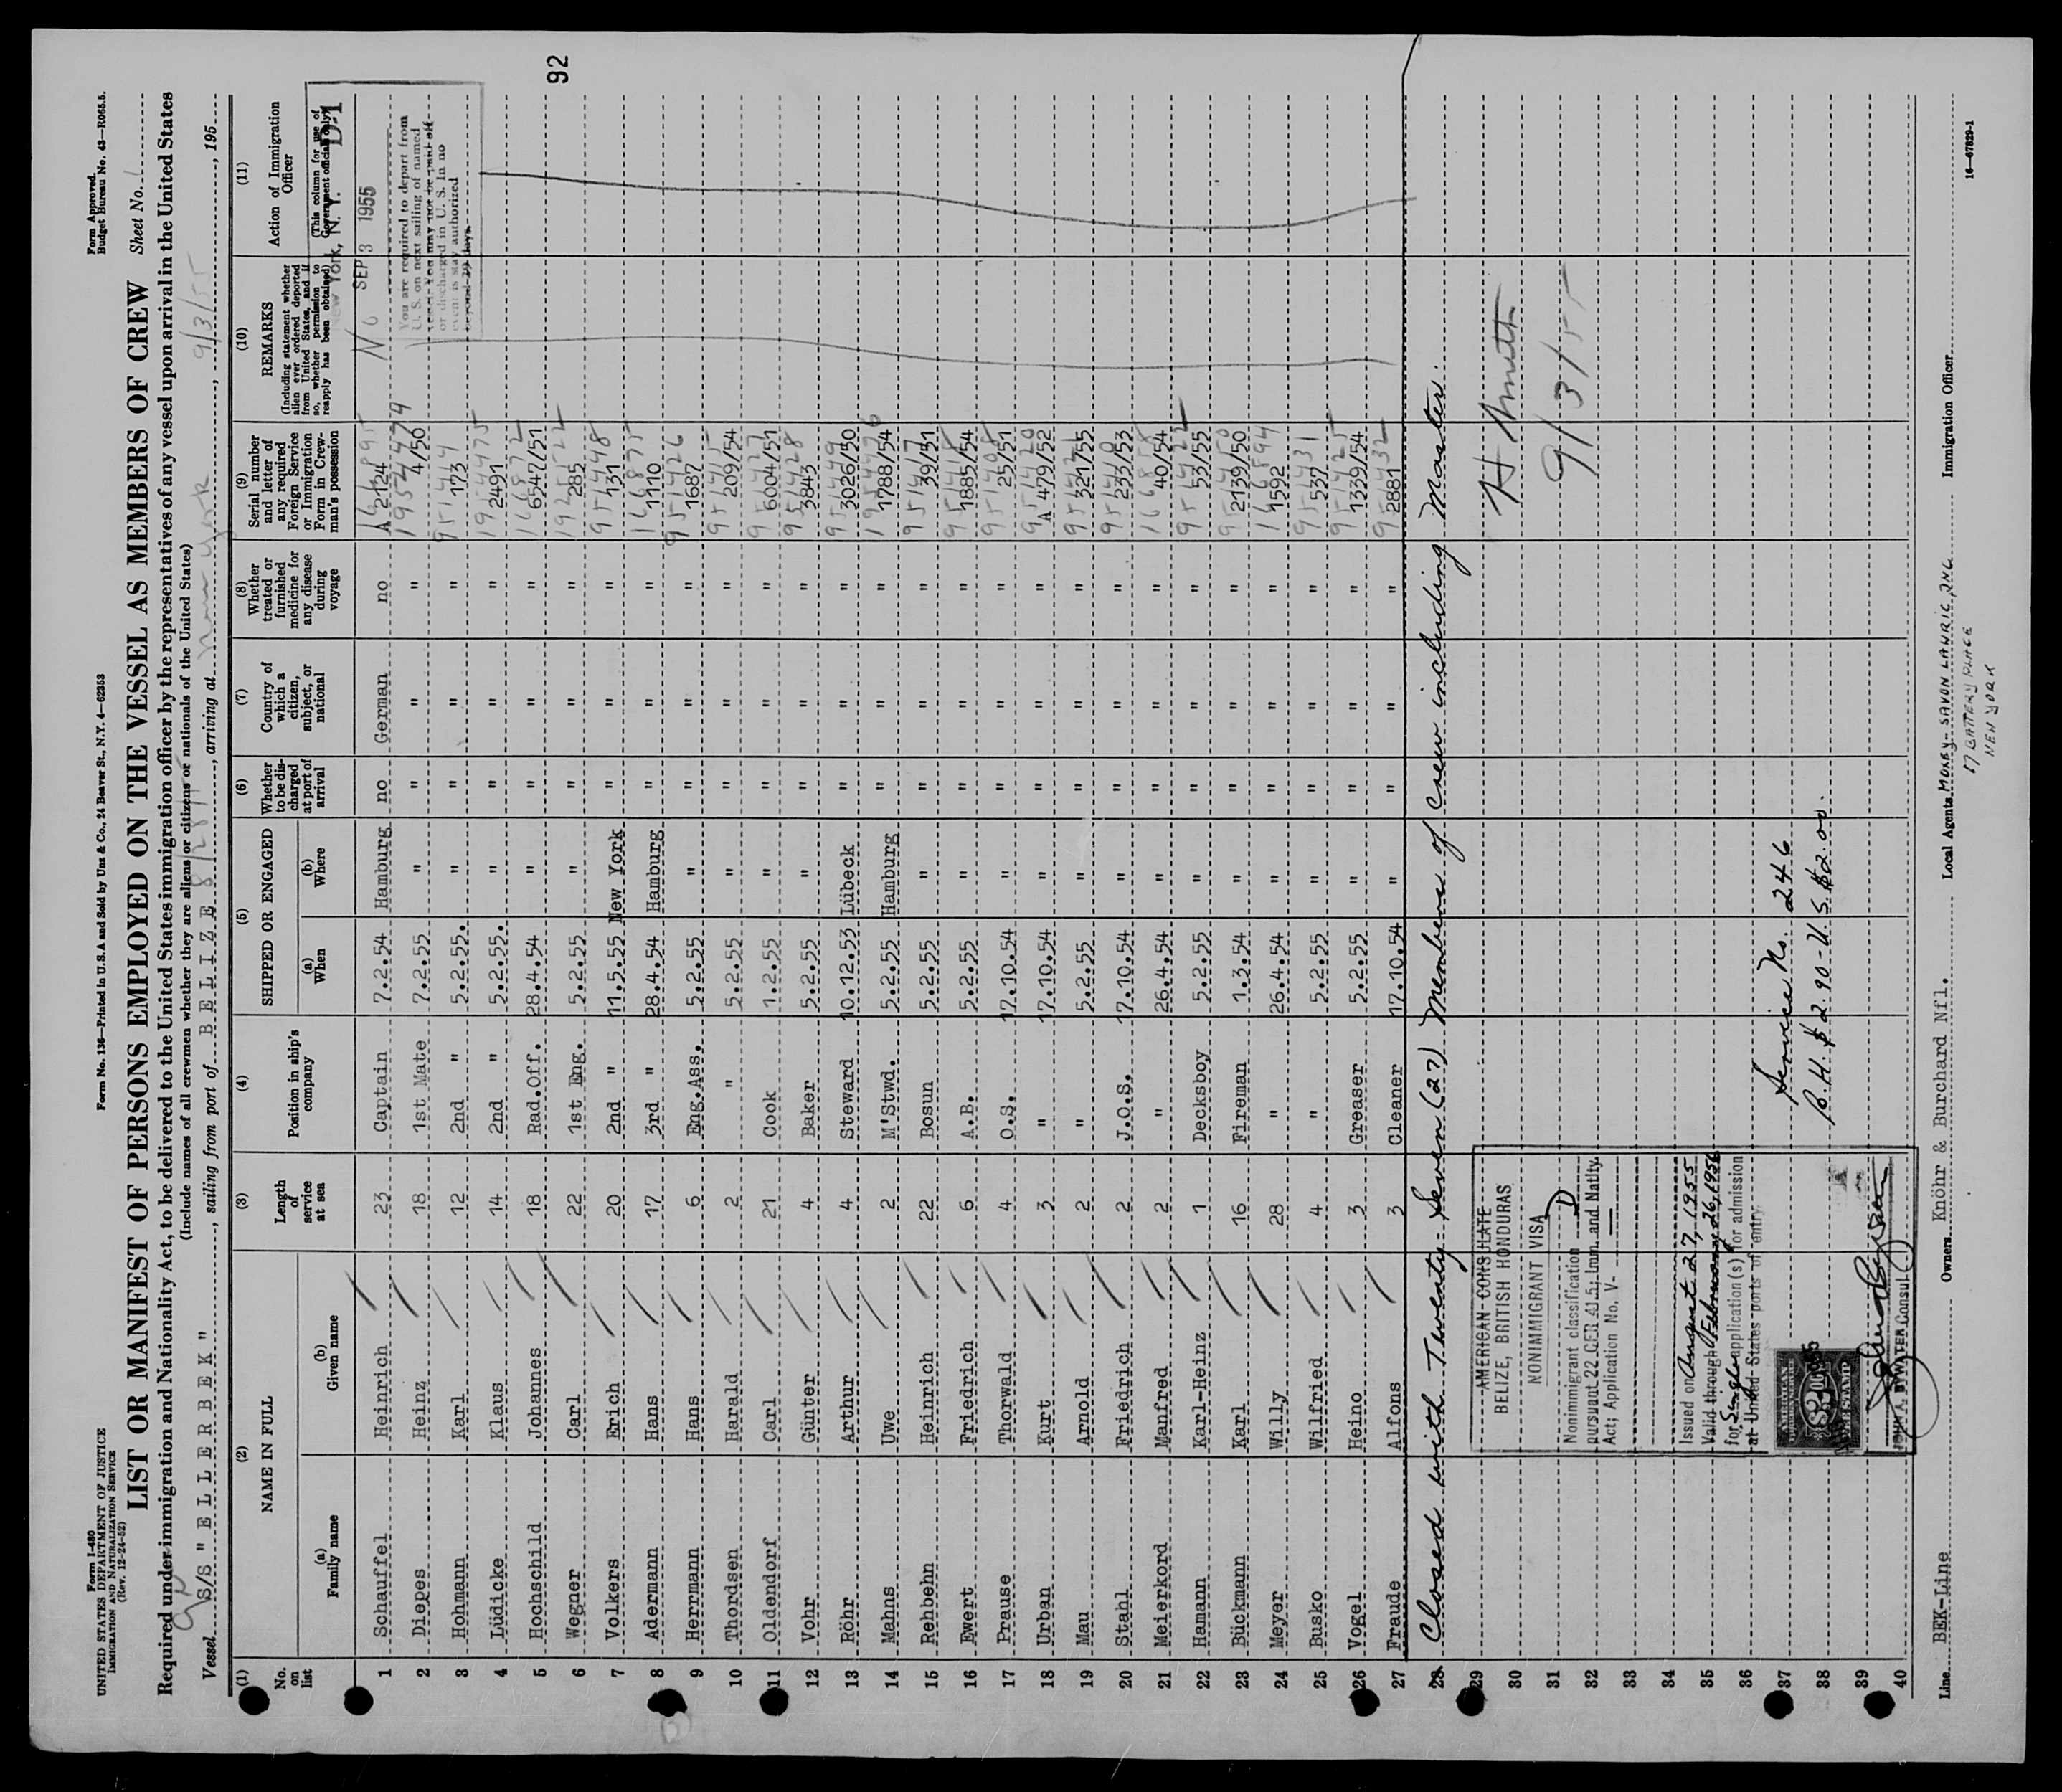 Form I-480
UNITED STATES DEPARTMENT OF JUSTICE
IMMIGRATION AND NATURALIZATION SERVICE
(Rev. 12-24-52)
Form No. 136—Printed in U.S.A and Sold by Unz & Co., 24 Beaver St., N.Y. 4—62353
Form Approved.
Budget Bureau No. 43—R065.5.
LIST OR MANIFEST OF PERSONS EMPLOYED ON THE VESSEL AS MEMBERS OF CREW Sheet No. 1
Required under immigration and Nationality Act, to be delivered to the United States immigration officer by the representatives of any vessel upon arrival in the United States
(Include names of all crewmen whether they are aliens or citizens or nationals of the United States)
Vessel S/S "ELLERBEK", sailing from port of BELIZE, arriving at New York, 9/3/55, 195
(1) No. on list
(2) NAME IN FULL
(a) Family name
(b) Given name
(3) Length of service at sea
(4) Position in ship's company
(5) SHIPPED OR ENGAGED
(a) When
(b) Where
(6) Whether to be discharged at port of arrival
(7) Country of which a citizen, subject, or national
(8) Whether treated or furnished medicine for any disease during voyage
(9) Serial number and letter of any required Foreign Service or Immigration Form in Crewman's possession
(10) REMARKS
(Including statement whether alien ever ordered deported from United States, and if so, whether permission to reapply has been obtained)
(11) Action of Immigration Officer
(This column for use of Government officials only)
New York, N. Y. D-1
SEP 3 1955
You are required to depart from
U. S. on next sailing of named
vessel. You may not be paid off
or discharged in U. S. In no
event is stay authorized
beyond 29 days.
92
1 Schauffel Heinrich 23 Captain 7.2.54 Hamburg no German no A 2124 No
2 Diepes Heinz 18 1st Mate 7.2.55 " " " " 4/50
3 Hohmann Karl 12 2nd " 5.2.55. " " " " 173
4 Lüdicke Klaus 14 2nd " 5.2.55. " " " " 2491
5 Hochschild Johannes 18 Rad.Off. 28.4.54 " " " " 6547/51
6 Wegner Carl 22 1st Eng. 5.2.55 " " " " 285
7 Volkers Erich 20 2nd " 11.5.55 New York " " " 131
8 Adermann Hans 17 3rd " 28.4.54 Hamburg " " " 1110
9 Herrmann Hans 6 Eng.Ass. 5.2.55 " " " " 1687
10 Thordsen Harald 2 " 5.2.55 " " " " 209/54
11 Oldendorf Carl 21 Cook 1.2.55 " " " " 6004/51
12 Vohr Günter 4 Baker 5.2.55 " " " " 3843
13 Röhr Arthur 4 Steward 10.12.53 Lübeck " " " 3026/50
14 Mahns Uwe 2 M'Stwd. 5.2.55 Hamburg " " " 1788/54
15 Rehbehn Heinrich 22 Bosun 5.2.55 " " " " 39/51
16 Ewert Friedrich 6 A.B. 5.2.55 " " " " 1885/54
17 Prause Thorwald 4 O.S. 17.10.54 " " " " 25/51
18 Urban Kurt 3 " 17.10.54 " " " " A 479/52
19 Mau Arnold 2 " 5.2.55 " " " " 321/55
20 Stahl Friedrich 2 J.O.S. 17.10.54 " " " " 233/53
21 Meierkord Manfred 2 " 26.4.54 " " " " 40/54
22 Hamann Karl-Heinz 1 Decksboy 5.2.55 " " " " 53/55
23 Bückmann Karl 16 Fireman 1.3.54 " " " " 2139/50
24 Meyer Willy 28 " 26.4.54 " " " " 1592
25 Busko Wilfried 4 " 5.2.55 " " " " 537
26 Vogel Heino 3 Greaser 5.2.55 " " " " 1339/54
27 Freude Alfons 3 Cleaner 17.10.54 " " " " 2881
28 Closed with Twenty-Seven (27) Members of Crew including Master.
29
30
31
32
33
34
35
36
37
38
39
40
AMERICAN CONSULATE
BELIZE, BRITISH HONDURAS
NONIMMIGRANT VISA
Nonimmigrant classification D
pursuant 22 CFR 41.5; Imm. and Natlty.
Act; Application No. V-
Issued on August 27, 1955
Valid through February 26, 1956
for Single application(s) for admission
at United States ports of entry.
JOHN A. BYWATER Consul
Service No. 246
B.H. $2.90 - U.S. $2.00.
9/3/55
Line BEK-Line Owners Knöhr & Burchard Nfl. Local Agents Immigration Officer
17 BATTERY PLACE
NEW YORK
16—67829-1